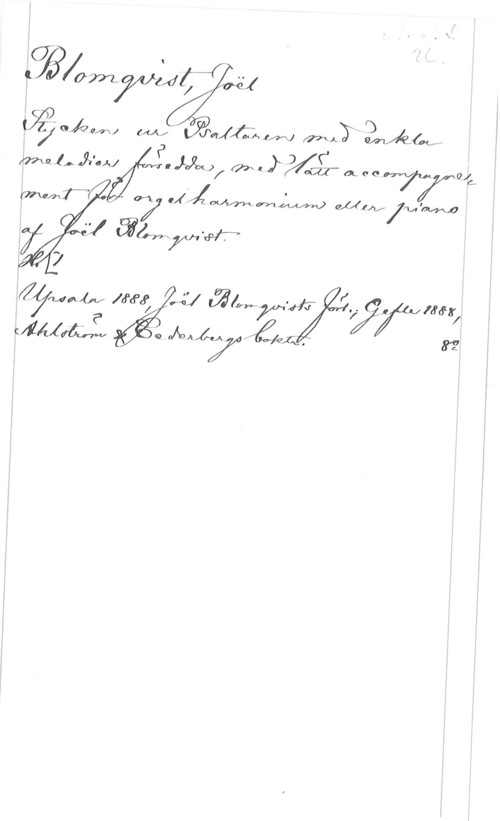 Blomqvist, Joël
Stycken ur Psaltaren med enkla
melodier försedda, med lätt accompagne-
ment för orgelharmonium eller piano
af Joël Blomqvist.
Upsala 1888, Joël Blomqvists förl.; Gefle 1888,
Ahlström & Cederbergs boktr. 8º